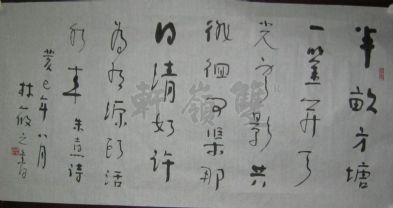 半畝方塘
一鑒开天
光雲影共
徘徊問渠那
得清如許
為有源頭活
水来 朱熹诗
癸巳年八月
林筱之書
雙嶺軒